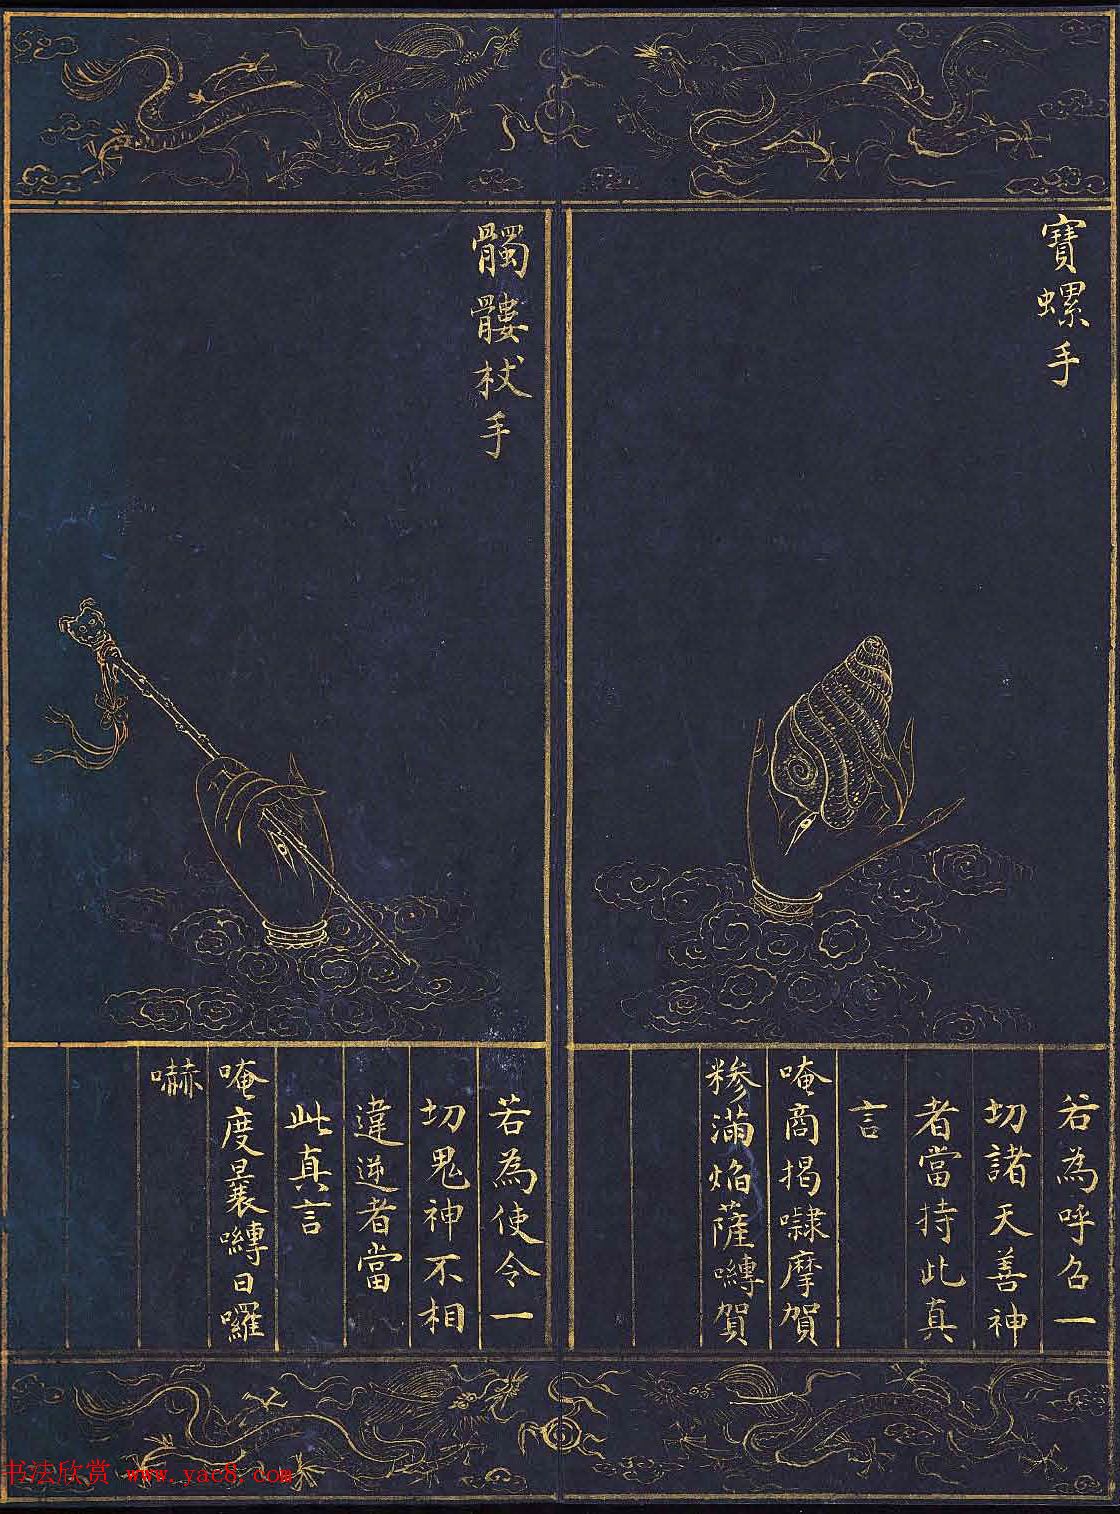 寶螺手
若為呼召一
切諸天善神
者當持此真
言
唵商揭㘑摩賀
糝滿焰薩嚩賀
髑髏杖手
若為使令一
切鬼神不相
違逆者當
此真言
唵度曩嚩日囉
嚇
书法欣赏 www.yac8.com